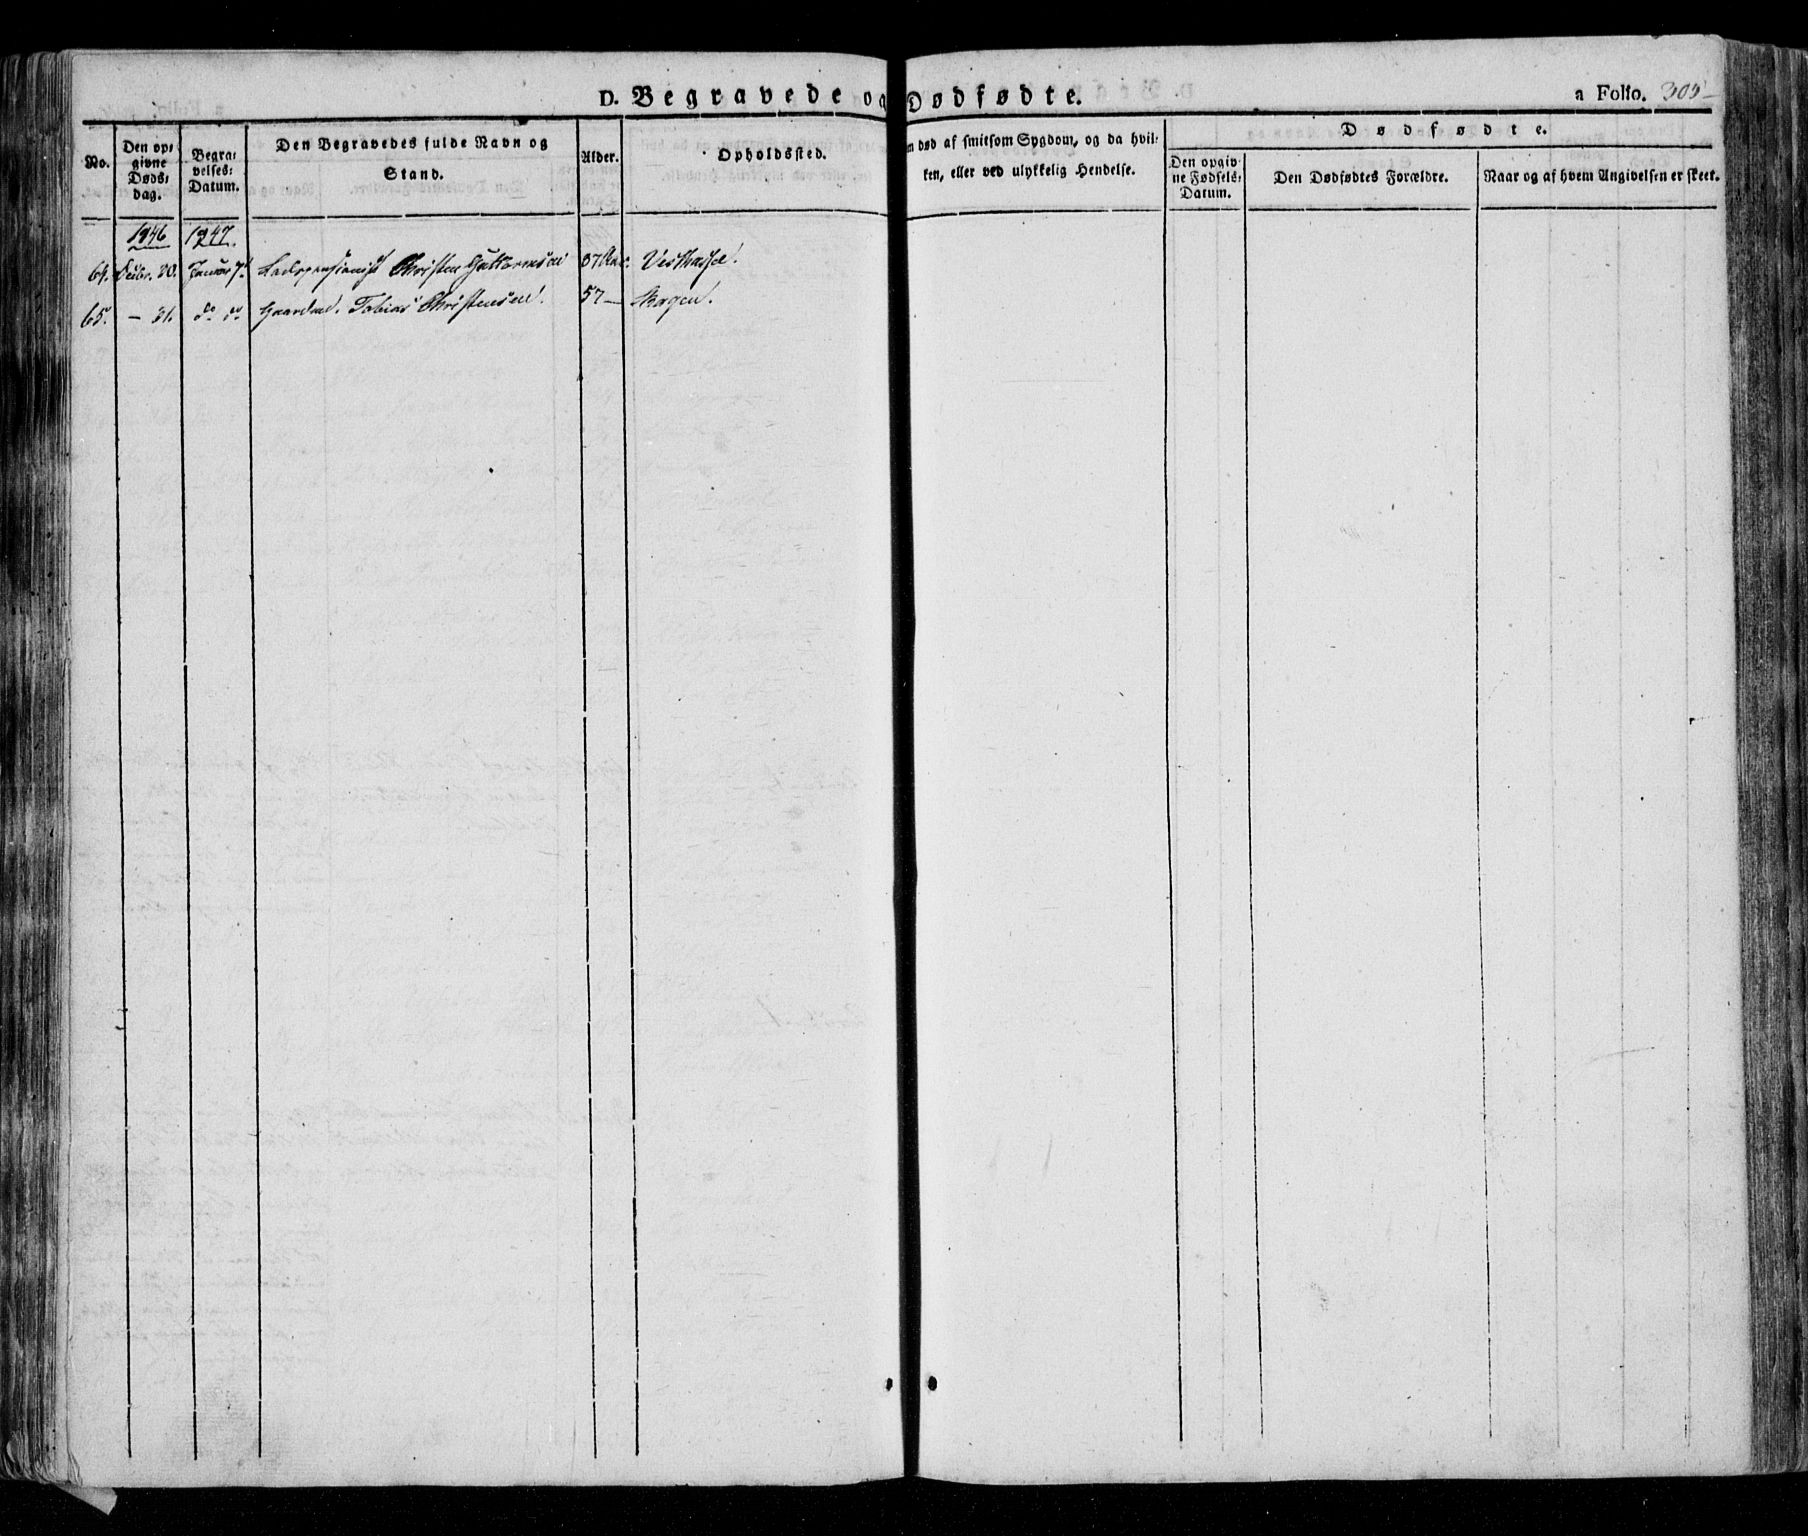 D. Begravede og Dødfødte.
a Folio. 305
No.
Den op-
givne
Døds-
dag.
Begra-
velses-
Datum.
Den Begravedes fulde Navn og
Stand.
Alder.
Opholdssted.
død af smitsom Sygdom, og da hvil-
ken, eller ved ulykkelig Hendelse.
Dødfødte.
Den opgiv-
ne Fødsels-
Datum.
Den Dødfødtes Forældre.
Naar og af hvem Angivelsen er skeet.
1846 1847.
64. Decbr. 30. Januar 7d Christen Guttormsen Aar. Veshassel.
65. — 31. do do Gaardm. Tobias Christensen. 57 — Skagen.